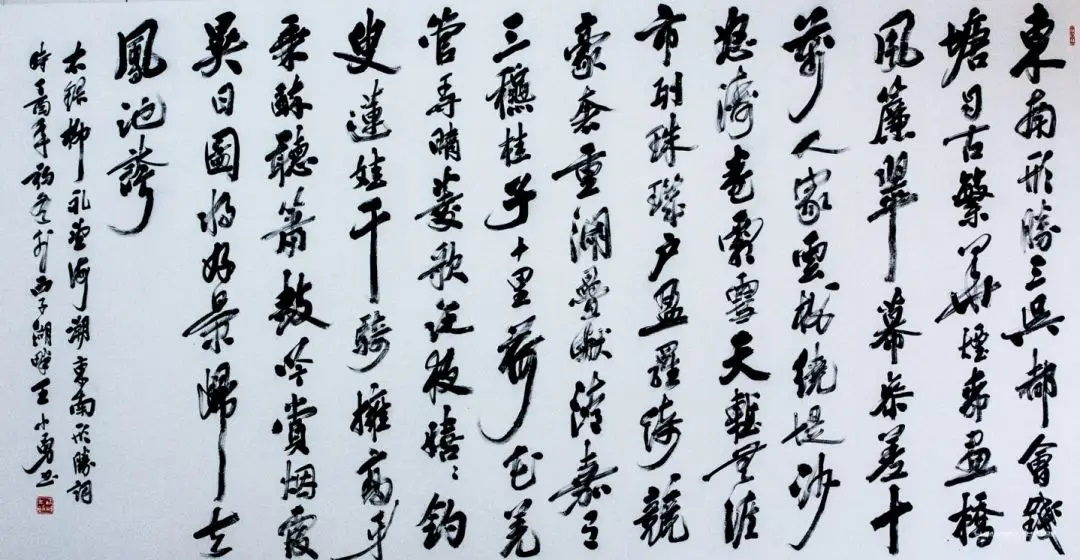 東南形勝三吳都會錢
塘自古繁華煙柳畫橋
風簾翠幕參差十
萬人家雲樹繞堤沙
怒濤卷霜雪天塹無涯
市列珠璣戶盈羅綺競
豪奢重湖疊巘清嘉有
三穐桂子十里荷花羌
管弄晴菱歌泛夜嬉〻釣
叟蓮娃千騎擁高牙
乘醉聽簫鼓吟賞烟霞
異日圖將好景歸去
鳳池誇
右錄柳望海潮東南形勝詞
時年初夏於西子湖畔王小勇書